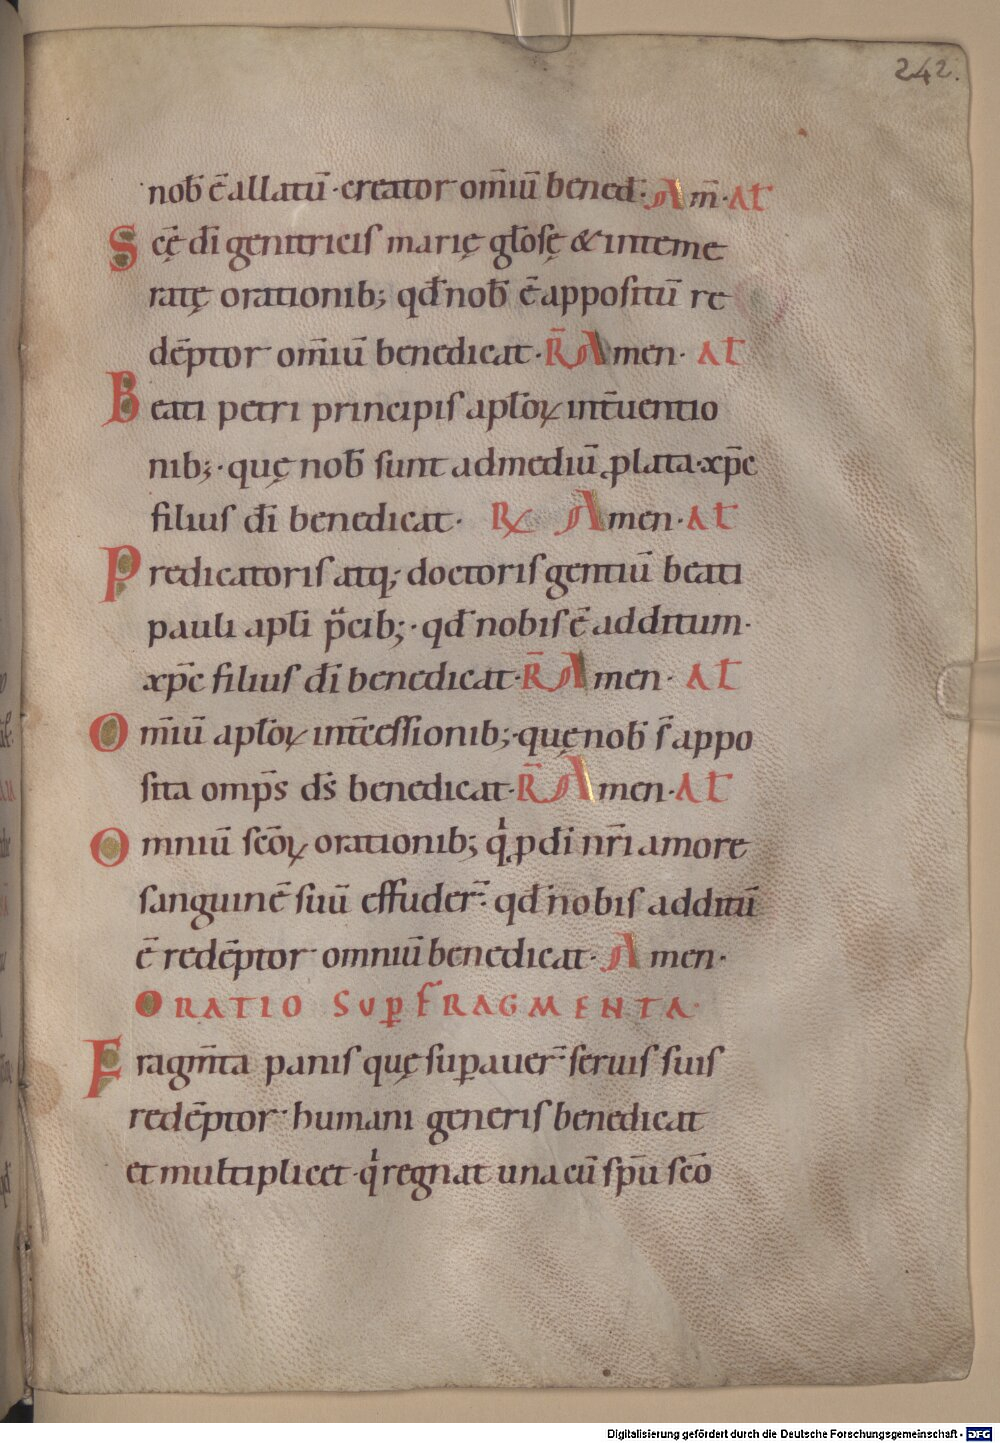 242.
nob̄ ē allatū · creator om̄iū bened̄ · Am̄ · At̄
Scę̄ dī genitricis marię gl̄osę & inteme
ratę orationib; qd̄ nob̄ ē appositū re
dēptor om̄iū benedicat · R̄ Amen · At̄
Beati petri principis apl̄oꝝ int̄uentio
nib; · quę nob̄ sunt ad mediū ꝓlata · xp̄e
filius dī benedicat · ℞ Amen · At̄
Predicatoris atq; doctoris gentiū beati
pauli apl̄i p̄cib; · qd̄ nobis ē additum ·
xp̄e filius dī benedicat · R̄ Amen · At̄
Om̄iū apl̄oꝝ int̄cessionib; · quę nob̄ s̄ appo
sita omp̄s ds̄ benedicat · R̄ Amen · At̄
Omniū sc̄oꝝ orationib; qⁱ ꝓ dī nr̄i amore
sanguinē suū effuder̄ · qd̄ nobis additū
ē redēptor omniū benedicat · Amen ·
ORATIO SUꝑ FRAGMENTA ·
Fragm̄ta panis quę suꝑauer̄ seruis suis
redēptor humani generis benedicat
et multiplicet · qⁱ regnat una cū sp̄u sc̄o
Digitalisierung gefördert durch die Deutsche Forschungsgemeinschaft - DFG